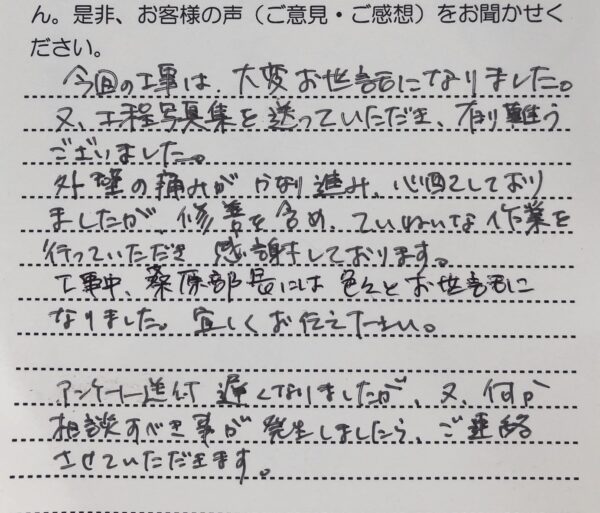 ん。是非、お客様の声（ご意見・ご感想）をお聞かせく
ださい。
今回の工事は、大変お世話になりました。
又、工程写真集を送っていただき、有り難う
ございました。
外壁の痛みが かなり進み、心配しており
ましたが、修善を含め、ていねいな作業を
行っていただき 感謝しております。
工事中、桑原部長には 色々とお世話に
なりました。宜しくお伝え下さい。
アンケート送付 遅くなりましたが、又、何か
相談すべき事が 発生しましたら、ご連絡
させていただきます。